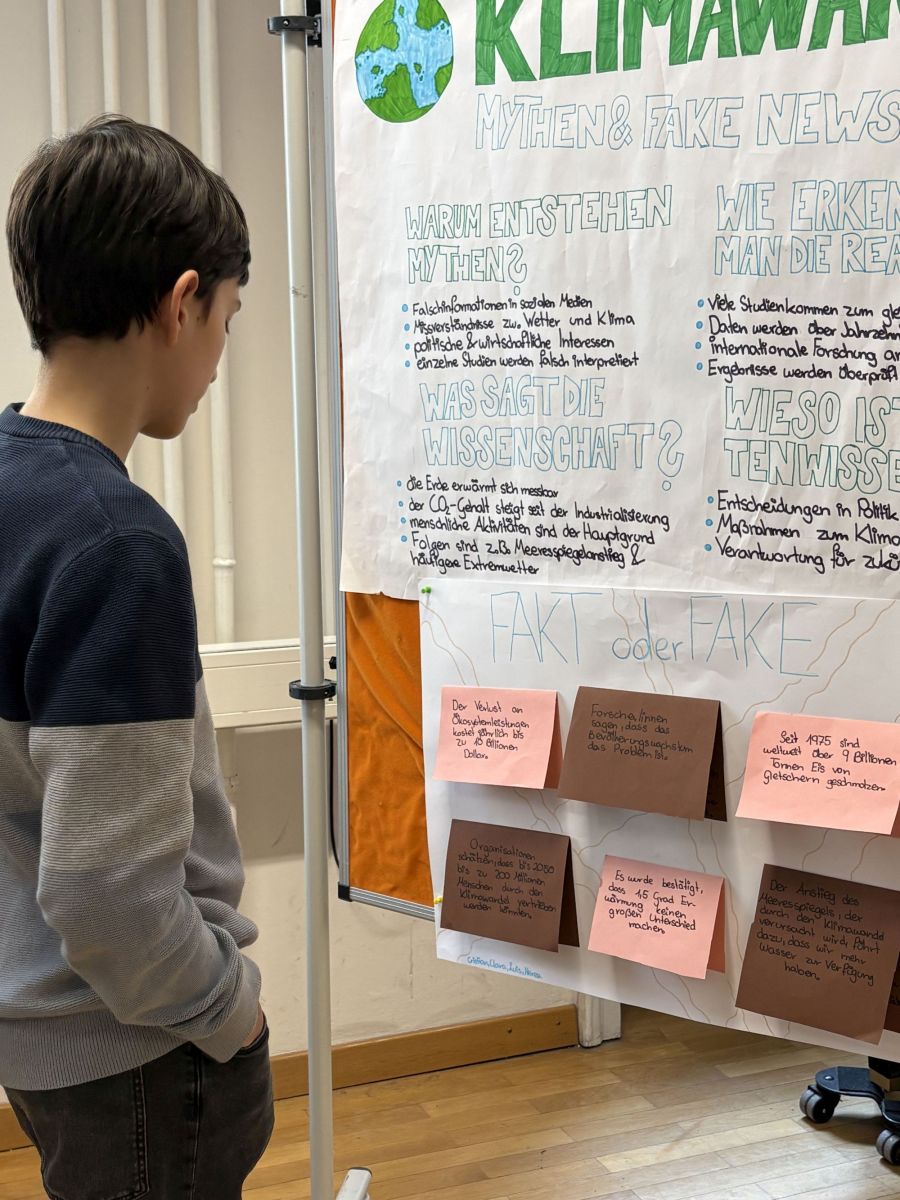 KLIMAWAN
MYTHEN & FAKE NEWS
WARUM ENTSTEHEN
MYTHEN?
• Falschinformationen in sozialen Medien
• Missverständnisse zw. Wetter und Klima
• politische & wirtschaftliche Interessen
• einzelne Studien werden falsch interpretiert
WIE ERKEN
MAN DIE REA
• Viele Studien kommen zum gle
• Daten werden über Jahrzehn
• internationale Forschung ar
• Ergebnisse werden überprüf
WAS SAGT DIE
WISSENSCHAFT?
• die Erde erwärmt sich messbar
• der CO₂-Gehalt steigt seit der Industrialisierung
• menschliche Aktivitäten sind der Hauptgrund
• Folgen sind z.B. Meeresspiegelanstieg &
häufigere Extremwetter
WIESO IST
TENWISSE
• Entscheidungen in Politik
• Maßnahmen zum Klima
• Verantwortung für zukü
FAKT oder FAKE
Der Verlust an
Ökosystemleistungen
kostet jährlich bis
zu 10 Billionen
Dollar.
Forscher/innen
sagen, dass das
Bevölkerungswachstum
das Problem ist.
Seit 1975 sind
weltweit über 9 Billionen
Tonnen Eis von
Gletschern geschmolzen.
Organisationen
schätzen, dass bis 2050
bis zu 200 Millionen
Menschen durch den
Klimawandel vertrieben
werden könnten.
Es wurde bestätigt,
dass 1,5 Grad Er-
wärmung keinen
großen Unterschied
machen.
Der Anstieg des
Meeresspiegels, der
durch den Klimawandel
verursacht wird, führt
dazu, dass wir mehr
Wasser zur Verfügung
haben.